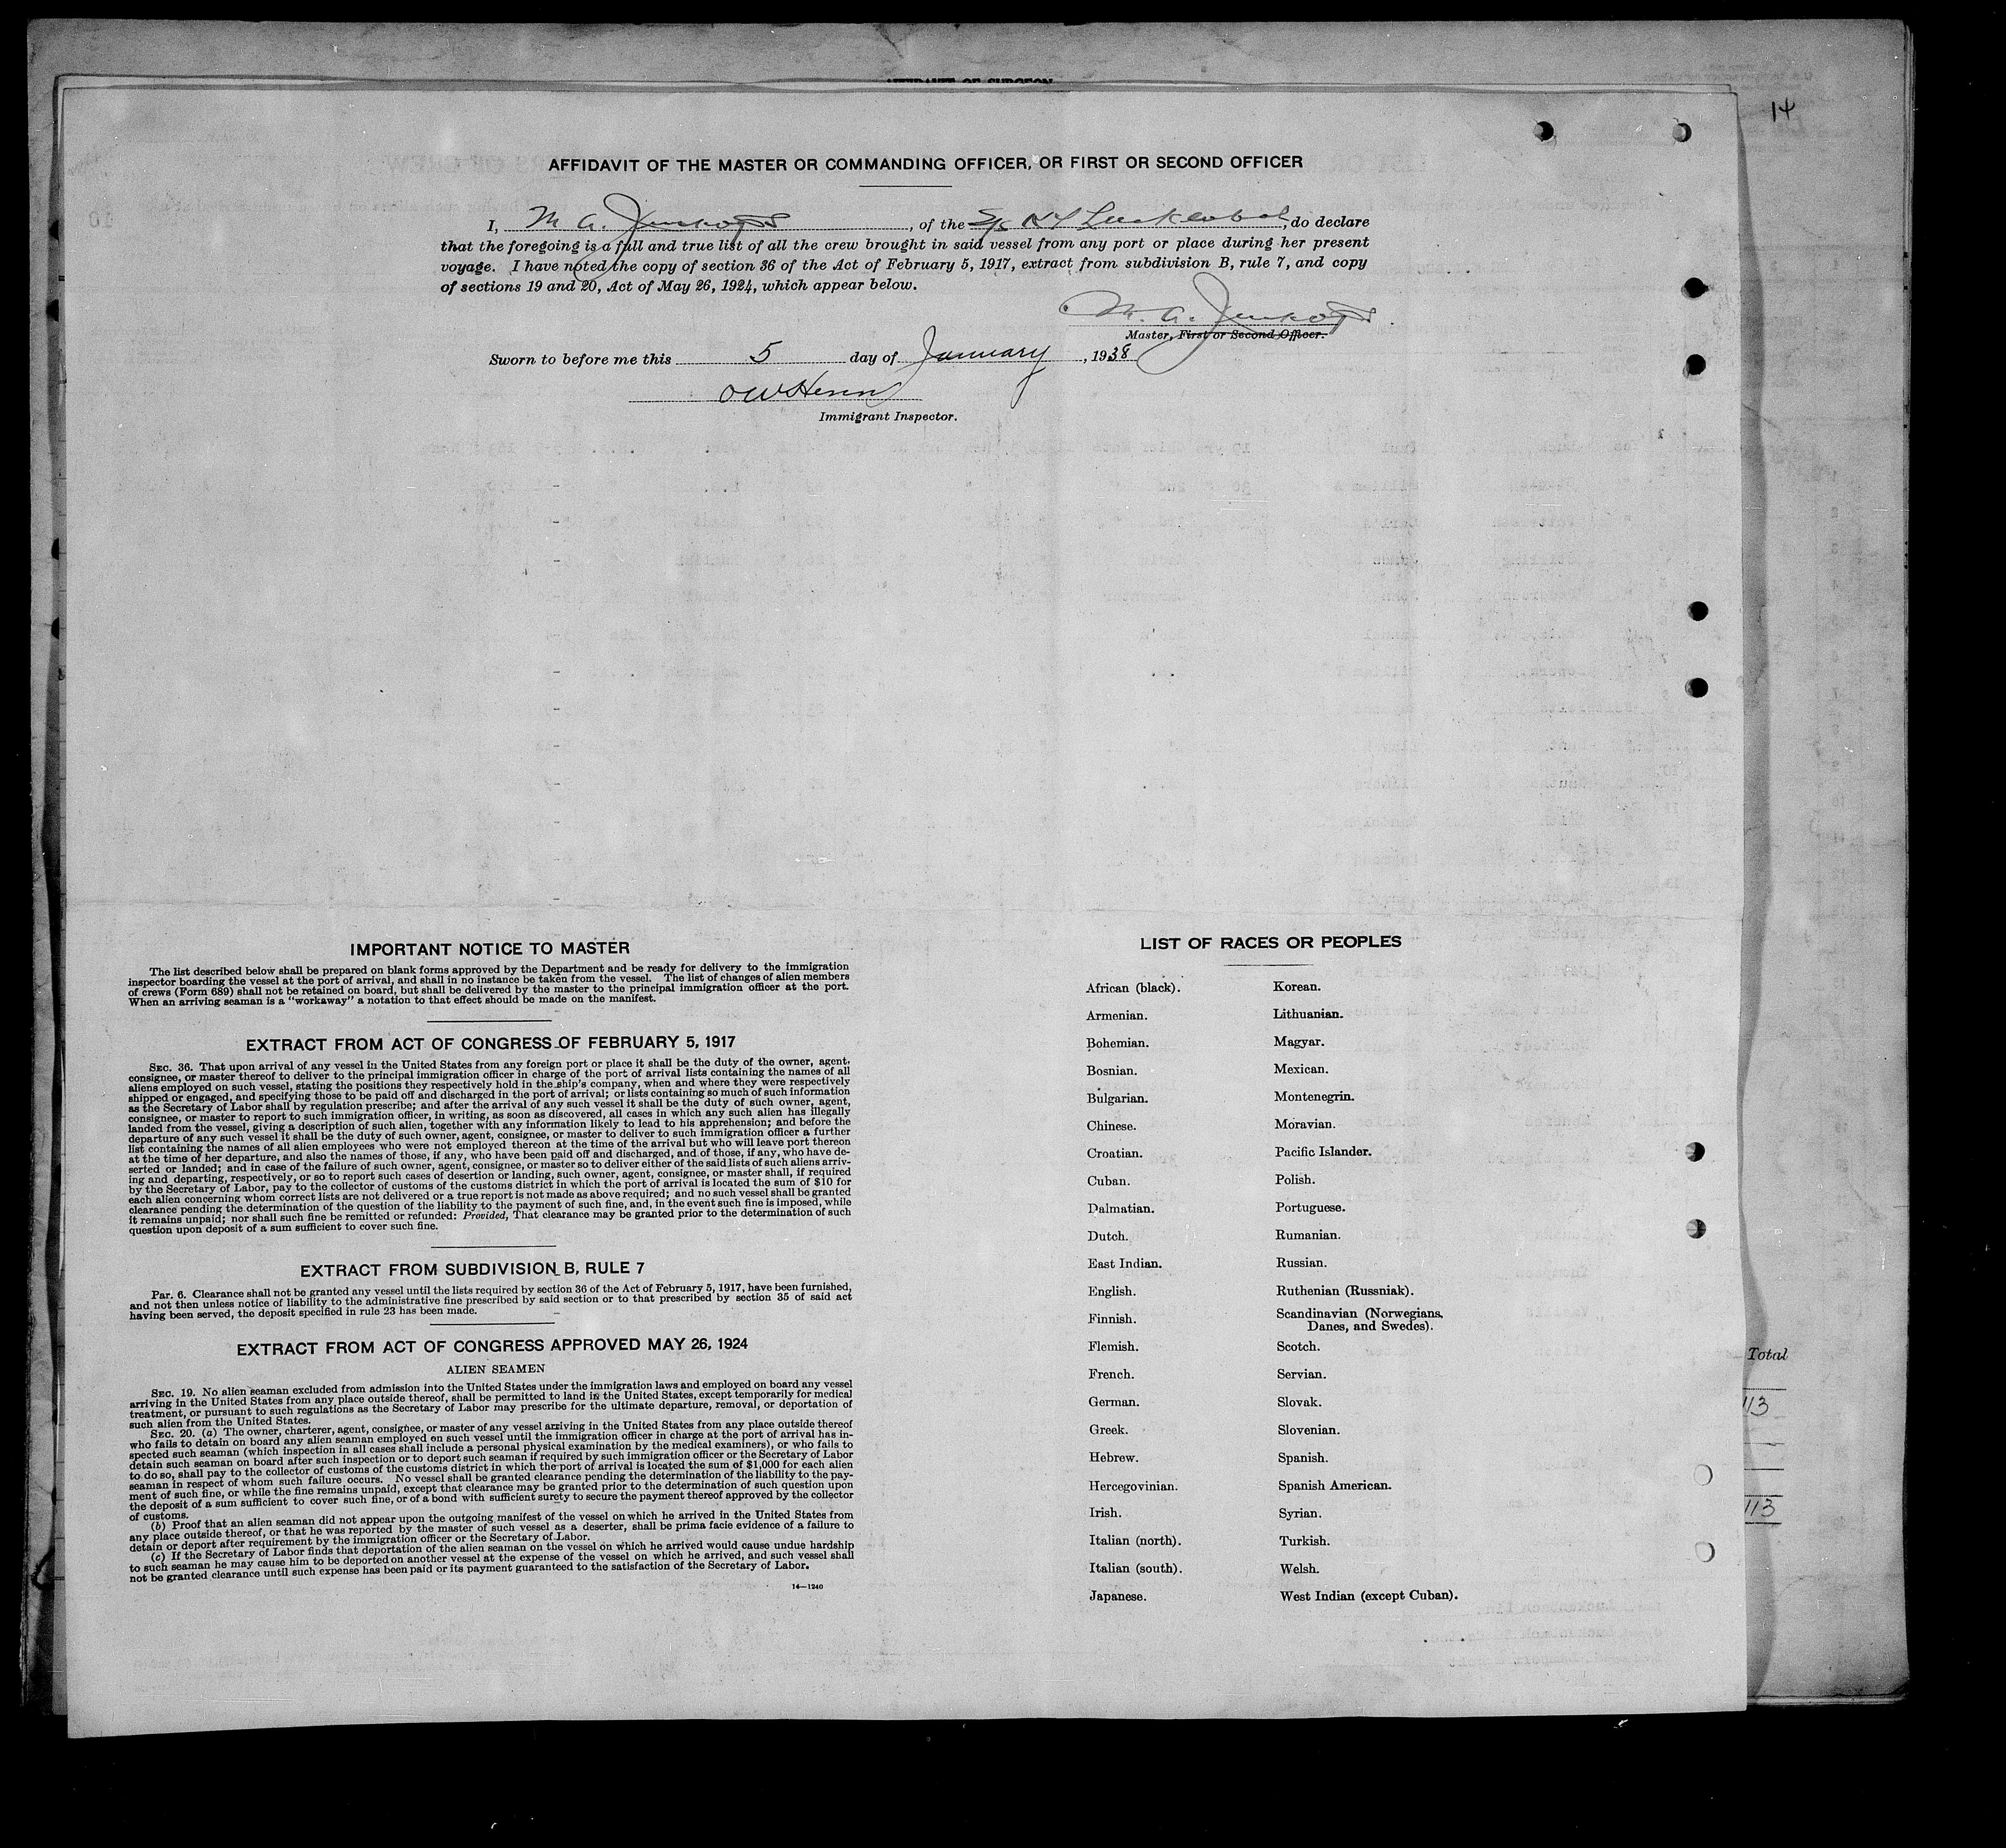 14
AFFIDAVIT OF THE MASTER OR COMMANDING OFFICER, OR FIRST OR SECOND OFFICER
I, M. A. , of the S/S , do declare
that the foregoing is a full and true list of all the crew brought in said vessel from any port or place during her present
voyage. I have noted the copy of section 36 of the Act of February 5, 1917, extract from subdivision B, rule 7, and copy
of sections 19 and 20, Act of May 26, 1924, which appear below.
M. A.
Master, First or Second Officer.
Sworn to before me this 5 day of January, 1938
Immigrant Inspector.
IMPORTANT NOTICE TO MASTER
The list described below shall be prepared on blank forms approved by the Department and be ready for delivery to the immigration
inspector boarding the vessel at the port of arrival, and shall in no instance be taken from the vessel. The list of changes of alien members
of crews (Form 689) shall not be retained on board, but shall be delivered by the master to the principal immigration officer at the port.
When an arriving seaman is a "workaway" a notation to that effect should be made on the manifest.
EXTRACT FROM ACT OF CONGRESS OF FEBRUARY 5, 1917
SEC. 36. That upon arrival of any vessel in the United States from any foreign port or place it shall be the duty of the owner, agent,
consignee, or master thereof to deliver to the principal immigration officer in charge of the port of arrival lists containing the names of all
aliens employed on such vessel, stating the positions they respectively hold in the ship's company, when and where they were respectively
shipped or engaged, and specifying those to be paid off and discharged in the port of arrival; or lists containing so much of such information
as the Secretary of Labor shall by regulation prescribe; and after the arrival of any such vessel it shall be the duty of such owner, agent,
consignee, or master to report to such immigration officer, in writing, as soon as discovered, all cases in which any such alien has illegally
landed from the vessel, giving a description of such alien, together with any information likely to lead to his apprehension; and before the
departure of any such vessel it shall be the duty of such owner, agent, consignee, or master to deliver to such immigration officer a further
list containing the names of all alien employees who were not employed thereon at the time of the arrival but who will leave port thereon
at the time of her departure, and also the names of those, if any, who have been paid off and discharged, and of those, if any, who have de-
serted or landed; and in case of the failure of such owner, agent, consignee, or master so to deliver either of the said lists of such aliens arriv-
ing and departing, respectively, or so to report such cases of desertion or landing, such owner, agent, consignee, or master shall, if required
by the Secretary of Labor, pay to the collector of customs of the customs district in which the port of arrival is located the sum of $10 for
each alien concerning whom correct lists are not delivered or a true report is not made as above required; and no such vessel shall be granted
clearance pending the determination of the question of the liability to the payment of such fine, and, in the event such fine is imposed, while
it remains unpaid; nor shall such fine be remitted or refunded: Provided, That clearance may be granted prior to the determination of such
question upon deposit of a sum sufficient to cover such fine.
EXTRACT FROM SUBDIVISION B, RULE 7
Par. 6. Clearance shall not be granted any vessel until the lists required by section 36 of the Act of February 5, 1917, have been furnished,
and not then unless notice of liability to the administrative fine prescribed by said section or to that prescribed by section 35 of said act
having been served, the deposit specified in rule 23 has been made.
EXTRACT FROM ACT OF CONGRESS APPROVED MAY 26, 1924
ALIEN SEAMEN
SEC. 19. No alien seaman excluded from admission into the United States under the immigration laws and employed on board any vessel
arriving in the United States from any place outside thereof, shall be permitted to land in the United States, except temporarily for medical
treatment, or pursuant to such regulations as the Secretary of Labor may prescribe for the ultimate departure, removal, or deportation of
such alien from the United States.
SEC. 20. (a) The owner, charterer, agent, consignee, or master of any vessel arriving in the United States from any place outside thereof
who fails to detain on board any alien seaman employed on such vessel until the immigration officer in charge at the port of arrival has in-
spected such seaman (which inspection in all cases shall include a personal physical examination by the medical examiners), or who fails to
detain such seaman on board after such inspection or to deport such seaman if required by such immigration officer or the Secretary of Labor
to do so, shall pay to the collector of customs of the customs district in which the port of arrival is located the sum of $1,000 for each alien
seaman in respect of whom such failure occurs. No vessel shall be granted clearance pending the determination of the liability to the pay-
ment of such fine, or while the fine remains unpaid, except that clearance may be granted prior to the determination of such question upon
the deposit of a sum sufficient to cover such fine, or of a bond with sufficient surety to secure the payment thereof approved by the collector
of customs.
(b) Proof that an alien seaman did not appear upon the outgoing manifest of the vessel on which he arrived in the United States from
any place outside thereof, or that he was reported by the master of such vessel as a deserter, shall be prima facie evidence of a failure to
detain or deport after requirement by the immigration officer or the Secretary of Labor.
(c) If the Secretary of Labor finds that deportation of the alien seaman on the vessel on which he arrived would cause undue hardship
to such seaman he may cause him to be deported on another vessel at the expense of the vessel on which he arrived, and such vessel shall
not be granted clearance until such expense has been paid or its payment guaranteed to the satisfaction of the Secretary of Labor.
14—1240
LIST OF RACES OR PEOPLES
African (black). Korean.
Armenian. Lithuanian.
Bohemian. Magyar.
Bosnian. Mexican.
Bulgarian. Montenegrin.
Chinese. Moravian.
Croatian. Pacific Islander.
Cuban. Polish.
Dalmatian. Portuguese.
Dutch. Rumanian.
East Indian. Russian.
English. Ruthenian (Russniak).
Finnish. Scandinavian (Norwegians,
Danes, and Swedes).
Flemish. Scotch.
French. Servian.
German. Slovak.
Greek. Slovenian.
Hebrew. Spanish.
Hercegovinian. Spanish American.
Irish. Syrian.
Italian (north). Turkish.
Italian (south). Welsh.
Japanese. West Indian (except Cuban).
Total
113
113